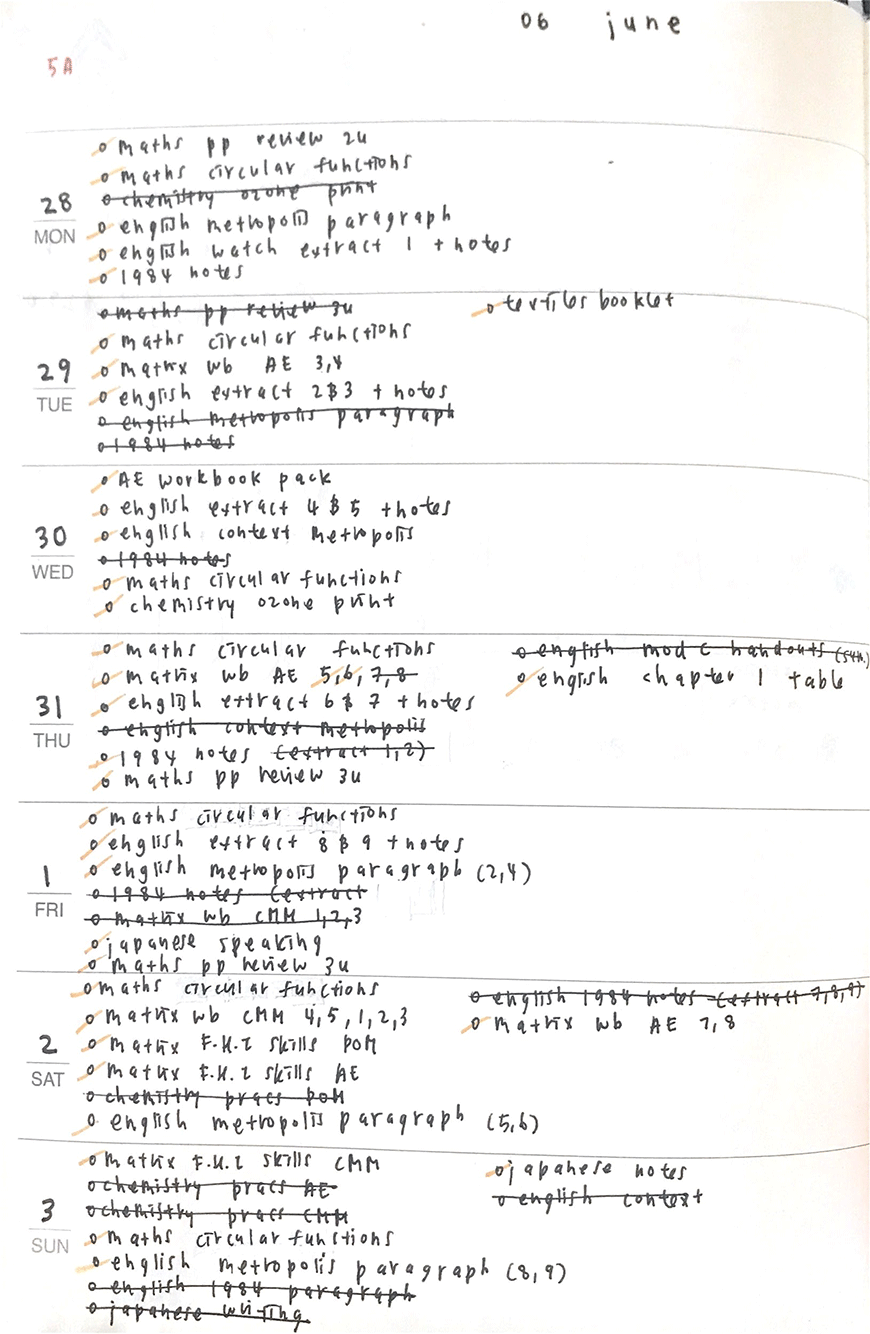 06 june
5A
28
MON
o maths pp review 2u
o maths circular functions
o chemistry ozone print
o english metropolis paragraph
o english watch extract 1 + notes
o 1984 notes
29
TUE
o maths pp review 3u
o maths circular functions
o matrix wb AE 3,4
o english extract 2 & 3 + notes
o english metropolis paragraph
o 1984 notes
o textiles booklet
30
WED
o AE workbook pack
o english extract 4 & 5 + notes
o english context metropolis
o 1984 notes
o maths circular functions
o chemistry ozone print
31
THU
o maths circular functions
o matrix wb AE 5,6,7,8
o english extract 6 & 7 + notes
o english context metropolis
o 1984 notes (extract 1,2)
o maths pp review 3u
o english mod c handouts
o english chapter 1 table
1
FRI
o maths circular functions
o english extract 8 & 9 + notes
o english metropolis paragraph (2,4)
o 1984 notes (extract
o matrix wb CMM 1,2,3
o japanese speaking
o maths pp review 3u
2
SAT
o maths circular functions
o matrix wb CMM 4,5,1,2,3
o matrix F.H.I skills POM
o matrix F.H.I skills AE
o chemistry pracs POM
o english metropolis paragraph (5,6)
o english 1984 notes (extract 7,8,9)
o matrix wb AE 7,8
3
SUN
o matrix F.H.I skills CMM
o chemistry pracs AE
o chemistry pracs CMM
o maths circular functions
o english metropolis paragraph (8,9)
o english 1984 paragraph
o japanese writing
o japanese notes
o english context